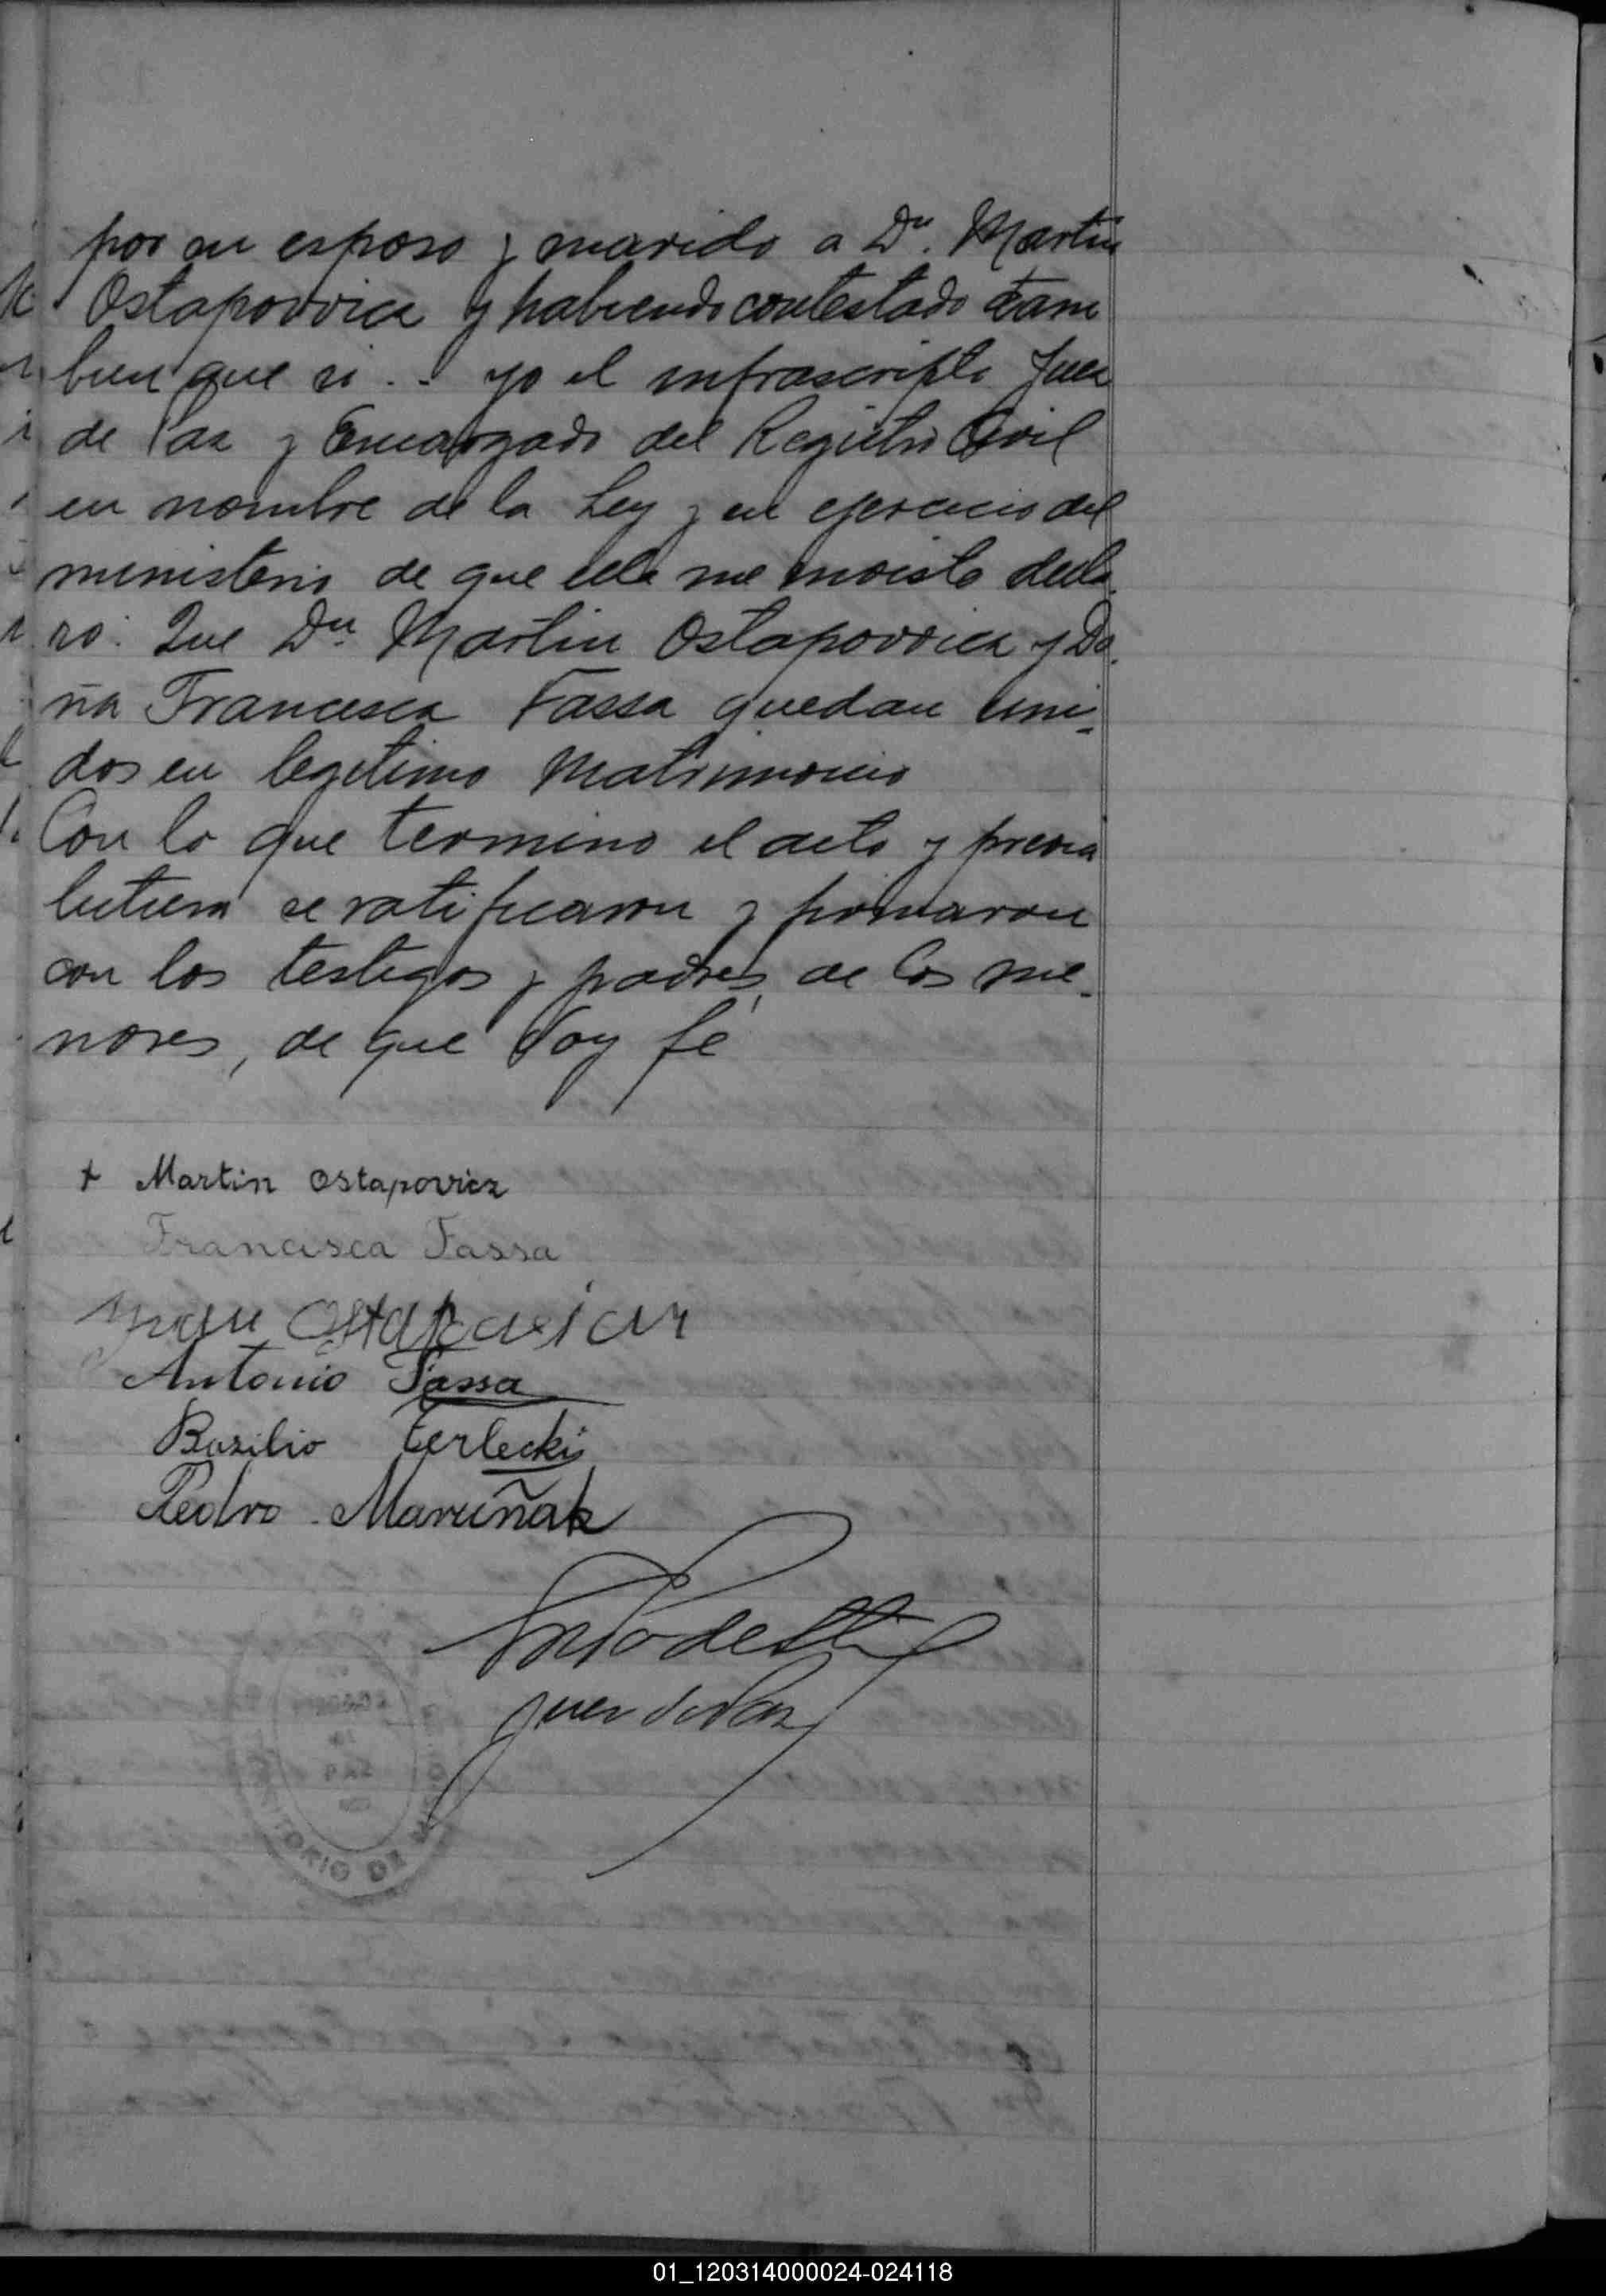 por su esposo y marido a Dn. Martin
Ostapovvicz y habiendo contestado tam
bien que si .. yo el infrascripto Juez
de Paz y Encargado del Registro Civil
en nombre de la Ley y en ejercicio del
ministerio de que ella me inviste decla
ro: Que Dn Martin Ostapovvicz y Do
ña Francisca Fassa quedan uni-
dos en legitimo Matrimonio
Con lo que termino el acto y previa
lectura se ratificaron y firmaron
con los testigos y padres de los me-
nores, de que doy fe
+ Martin Ostapovicz
Francisca Fassa
Ostapovicz
Antonio Fassa
Bazilio Terlecki
Pedro Maruñak
Juez de Paz
TORIO DE
01_120314000024-024118